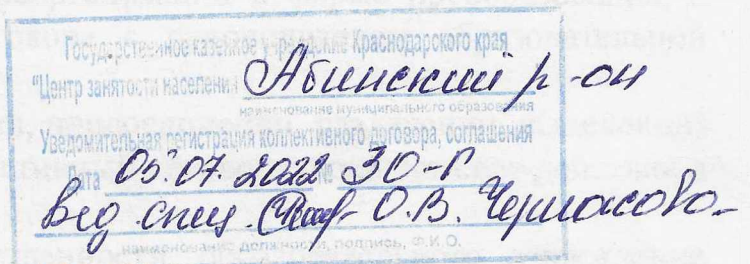 Государственное казенное учреждение Краснодарского края
"Центр занятости населения Абинский р-он
наименование муниципального образования
Уведомительная регистрация коллективного договора, соглашения
Дата 05.07.2022 № 30-Г
вед. спец. О.В. Черкасова
наименование должности, подпись, Ф.И.О.